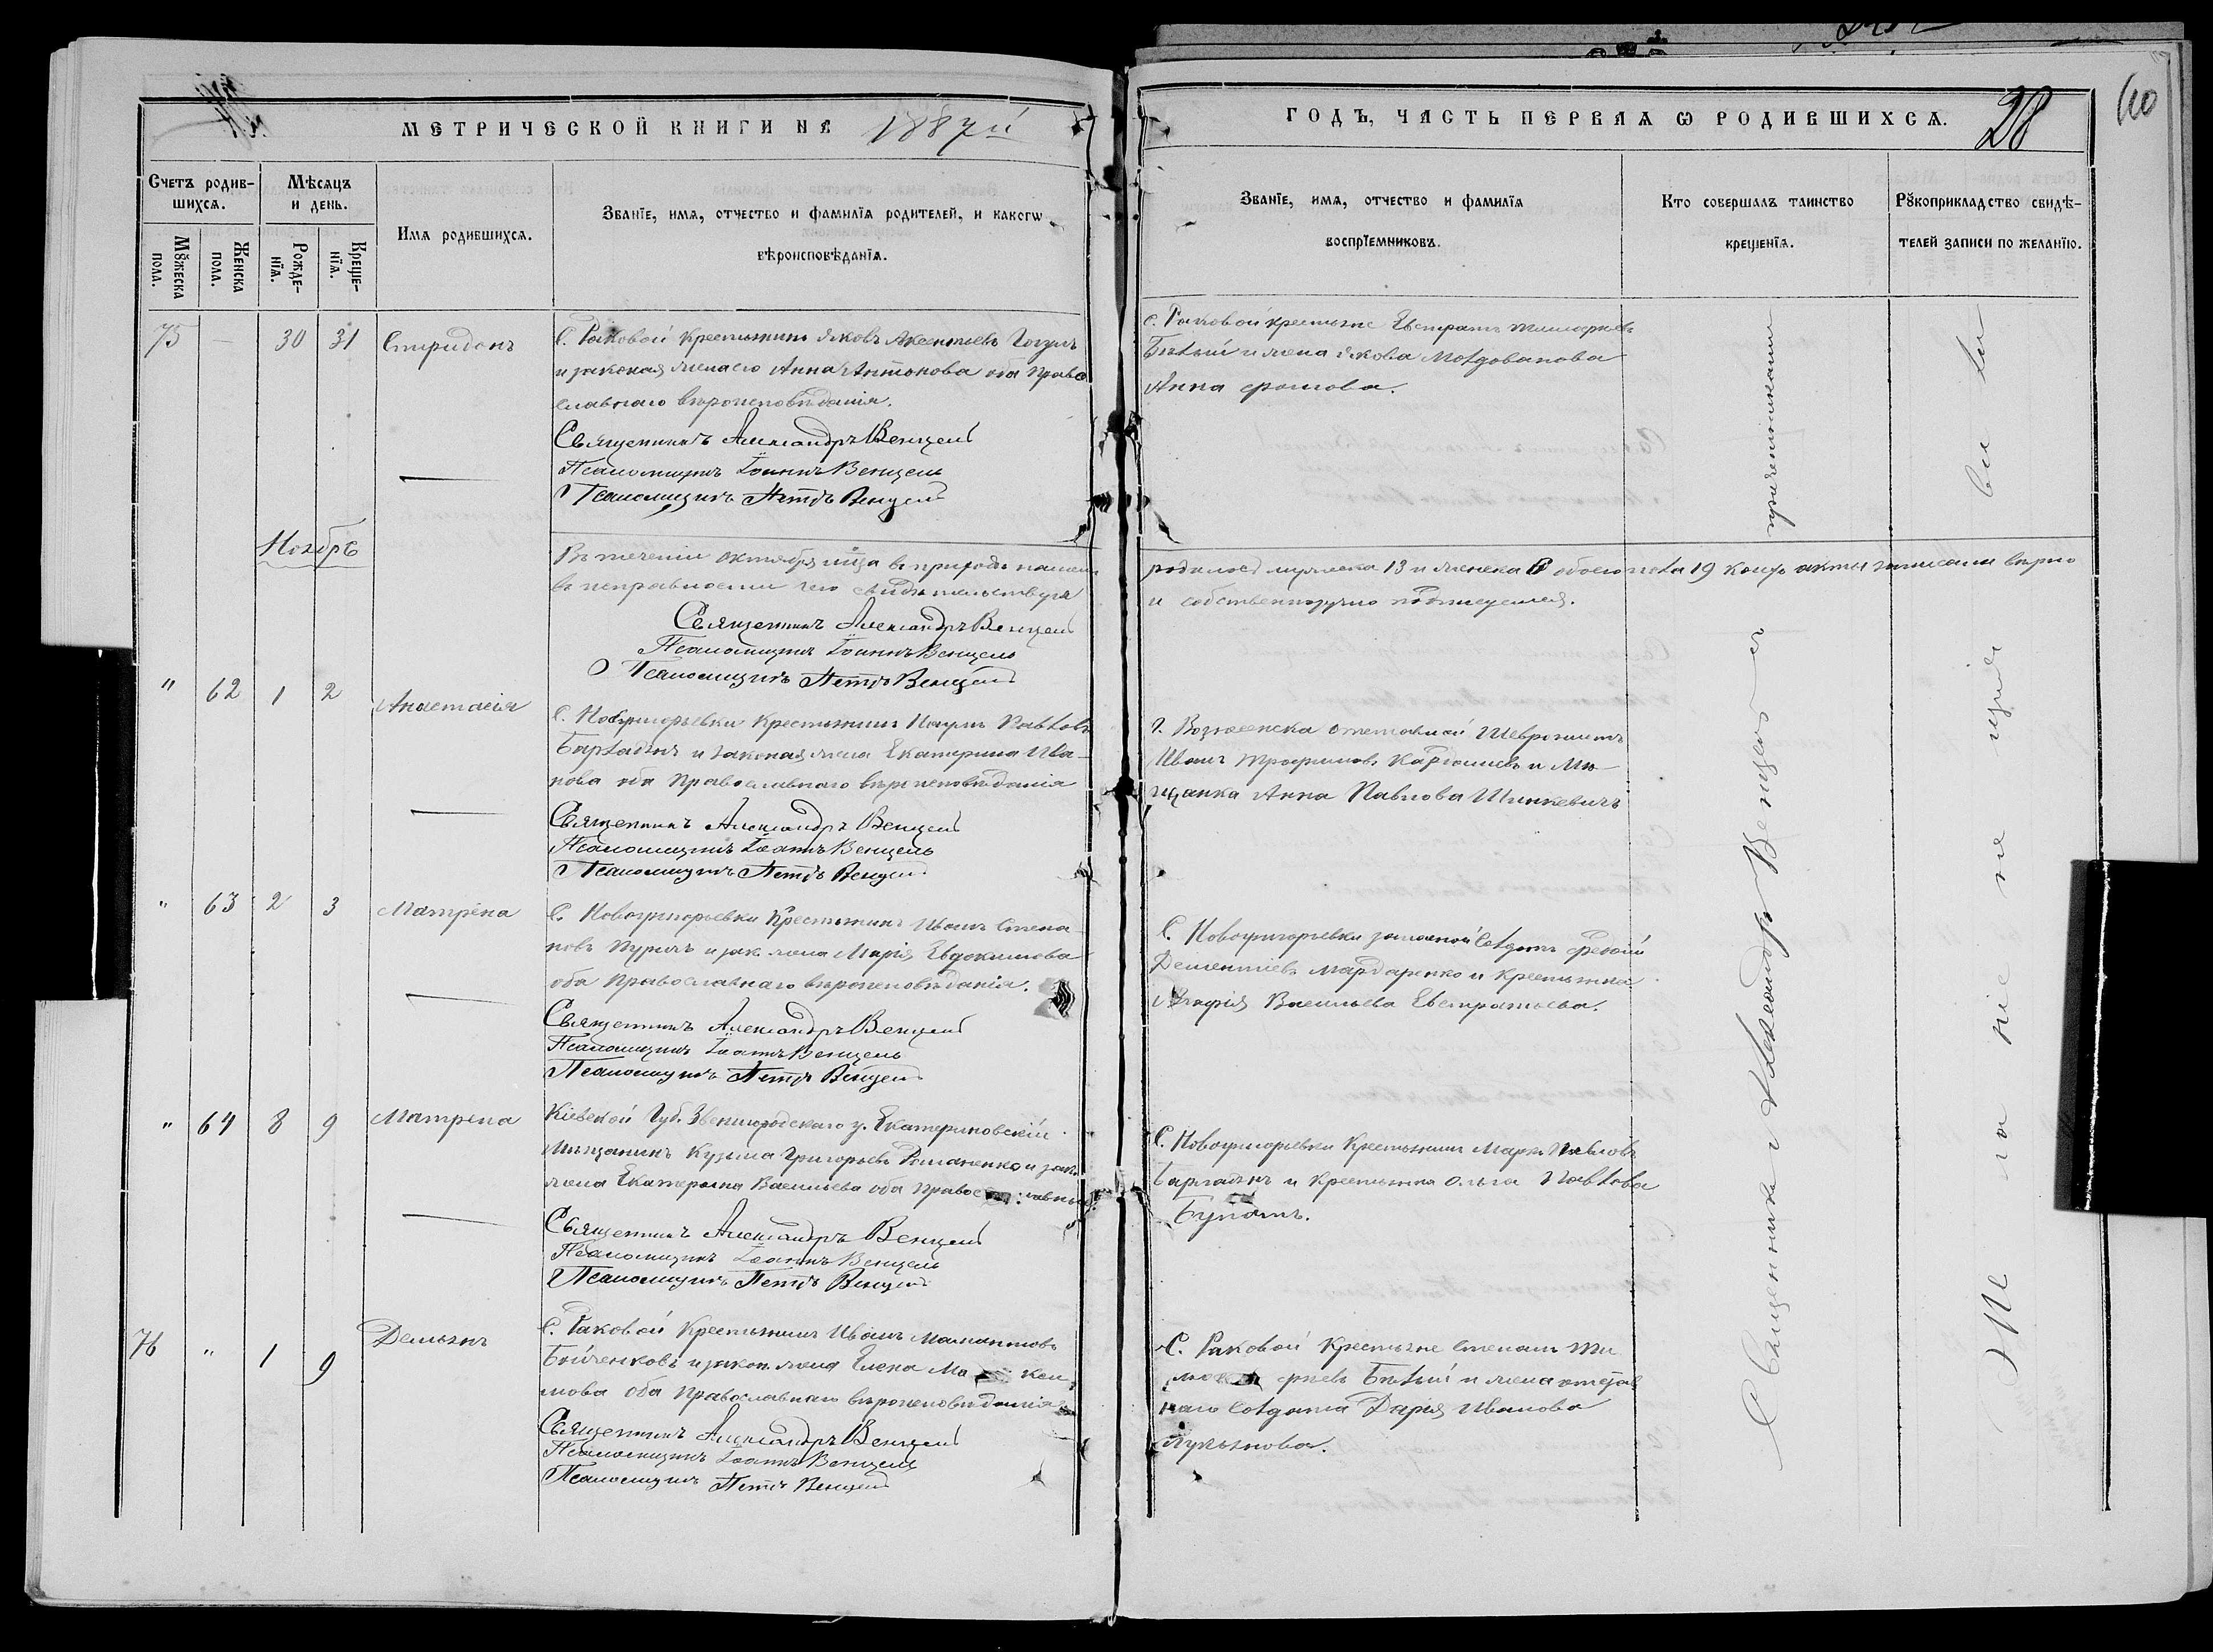 МЕТРИЧЕСКОЙ КНИГИ НА 1887й
ГОДЪ, ЧАСТЬ ПЕРВАЯ Ѡ РОДИВШИХСЯ.
28
60
Счетъ родив-
шихся.
Мѣсяцъ
и день.
Мꙋжеска
пола.
Женска
пола.
Рожде-
нїя.
Креще-
нїя.
Имя родившихся.
Званїе, имя, отчество и фамилїя родителей, и какогѡ
вѣроисповѣданїя.
Званїе, имя, отчество и фамилїя
воспрїемниковъ.
Кто совершалъ таинство
крещенїя.
Рꙋкоприкладство свидѣ-
телей записи по желанїю.
75 — 30 31 Спиридонъ
С. Раковой Крестьянинъ Яковъ Авксентьевъ
и законая жена его Анна Антонова оба Право
славнаго вѣроисповѣданія.
Священникъ Александръ Венцель
Псаломщикъ Іоаннъ Венцель
Псаломщикъ Петръ Венцель
С. Раковой крестьяне Евстратъ
Бѣлый и жена Якова Молдованова
Анна
Ноябрь
Въ теченіи Октября мца въ приходѣ нашемъ
въ исправности чего свидѣтельствуя
родилось мужеска 13 и женска 6 обоего пола 19 коихъ акты записаны вѣрно
и собственноручно подписуемся.
Священникъ Александръ Венцель
Псаломщикъ Іоаннъ Венцель
Псаломщикъ Петръ Венцель
" 62 1 2 Анастасія
С. Новогригорьевки Крестьянинъ Наумъ Павловъ
Баргадинъ и законая жена Екатерина Ива-
нова оба Православнаго вѣроисповѣданія
Священникъ Александръ Венцель
Псаломщикъ Іоаннъ Венцель
Псаломщикъ Петръ Венцель
Г. Вознесенска отставной
Иванъ Трофимовъ и Мѣ-
щанка Анна Павлова Шинкевичъ
" 63 2 3 Матрена
С. Новогригорьевки Крестьянинъ Иванъ Степа-
новъ и зак. жена Марія Евдокимова
оба Православнаго вѣроисповѣданія.
Священникъ Александръ Венцель
Псаломщикъ Іоаннъ Венцель
Псаломщикъ Петръ Венцель
С. Новогригорьевки запасной Солдатъ
Дементіевъ Мардаренко и Крестьянка
Агафія Васильева Евстратьева.
" 64 8 9 Матрена
Кіевской Губ. Звенигородскаго у. Екатериновскій
Мѣщанинъ Кузьма Григорьевъ Романенко и зак.
жена Екатерина Васильева оба Православныи.
Священникъ Александръ Венцель
Псаломщикъ Іоаннъ Венцель
Псаломщикъ Петръ Венцель
С. Новогригорьевки Крестьянинъ Марко Павловъ
Баргадинъ и Крестьянка Ольга Павлова
76 " 1 9 Демьянъ
С. Раковой Крестьянинъ Иванъ Мамантовъ
Бойченковъ и закон. жена Елена Ма кси
мова оба Православнаго вѣроисповѣданія
Священникъ Александръ Венцель
Псаломщикъ Іоаннъ Венцель
Псаломщикъ Петръ Венцель
С. Раковой Крестьяне Степанъ Ти
Бѣлый и жена отстав
наго Солдата Дарія Иванова
Лукьянова.
Священникъ Александръ Венцель съ причетниками